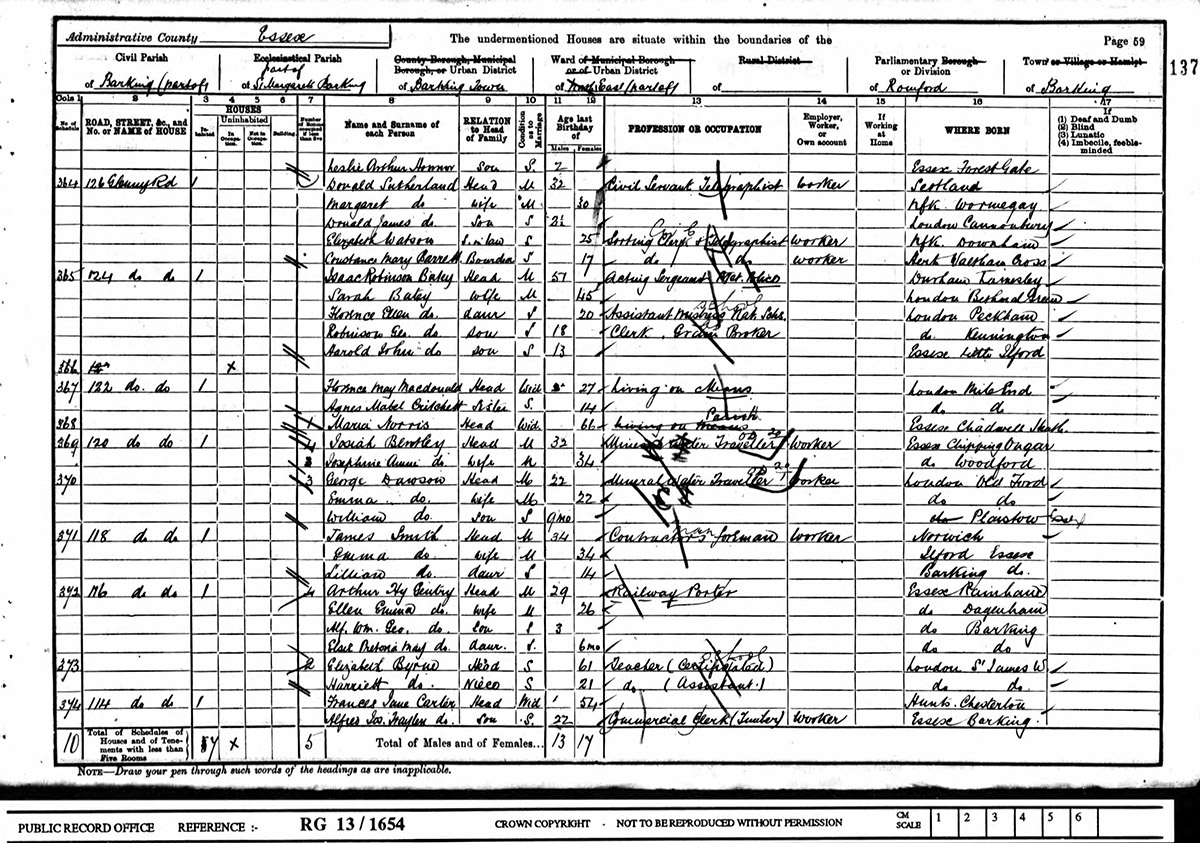 Administrative County Essex The undermentioned Houses are situate within the boundaries of the Page 59
137
Civil Parish Ecclesiastical Parish County Borough, Municipal Borough, or Urban District Ward of Municipal Borough or of Urban District Rural District Parliamentary Borough or Division Town or Village or Hamlet
of Barking (part of) of part of St Margarets Barking of Barking Town of North East (part of) of of Romford of Barking
Cols 1 2 3 4 5 6 7 8 9 10 11 12 13 14 15 16 17
No. of Schedule ROAD, STREET, &c., and No. or NAME of HOUSE HOUSES Inhabited Uninhabited In Occupation. Not in Occupation. Building. Number of Rooms occupied if less than five Name and Surname of each Person RELATION to Head of Family Condition as to Marriage Age last Birthday of Males Females PROFESSION OR OCCUPATION Employer, Worker, or Own account If Working at Home WHERE BORN (1) Deaf and Dumb (2) Blind (3) Lunatic (4) Imbecile, feeble-minded
Leslie Arthur Son S. 2 Essex Forest Gate
364 126 Glenny Rd 1 Donald Sutherland Head M 32 Civil Servant Telegraphist Worker Scotland
Margaret do. Wife M. 30 Nfk. Wormegay
Donald James do. Son S London Cannonbury
Elizabeth Watson S. in law S 25 Sorting Clerk & Telegraphist Worker Nfk. Downham
Constance Mary Barrett Boarder S 17 do do Worker Herts Waltham Cross
365 124 do do 1 Isaac Robinson Batey Head M 51 Acting Sergeant Met. Police Durham
Sarah Batey Wife M 45 London Bethnal Green
Florence Ellen do. daur S 20 Assistant Mistress Nat. Schs. London Peckham
Robinson Geo. do. Son S 18 Clerk. Grain Broker do. Kennington
Harold John do Son S 13 Essex Little Ilford
366 x
367 122 do. do 1 Florence May Macdonald Head Wid 27 Living on Means London Mile End
Agnes Mabel Critchett Sister S. 14 do do
368 Maria Norris Head Wid. 66 Living on means Parish Essex Chadwell Heath
369 120 do do 1 4 Josiah Bentley Head M 32 Mineral Water Traveller Worker Essex Chipping Ongar
Josephine Annie do. Wife M 34 do. Woodford
370 3 George Dawson Head M 22 Mineral Water Traveller Worker London Old Ford
Emma do. Wife M 22 do do
William do. Son S 9 mo do Plaistow Essex
371 118 do do 1 James Smith Head M 34 Contractors foreman Worker Norwich
Emma do. Wife M 34 Ilford Essex
Lillian do. daur S 14 Barking do.
372 116 do do 1 4 Arthur Hy Gentry Head M 29 Railway Porter Essex Rainham
Ellen Emma do. Wife M 26 do Dagenham
Alf. Wm. Geo. do. Son S 3 do Barking
Elsie Pretoria May do. daur. S. 6 mo do do
373 2 Elizabeth Byrne Head S 61 Teacher (Certificated) London St James W.
Harriett do. Niece S 21 do (Assistant) do do.
374 114 do do 1 Frances Jane Carter Head Wid 54 Hunts. Chesterton
Alfred Jos. do. Son S. 22 Commercial Clerk (Timber) Worker Essex Barking.
10 Total of Schedules of Houses and of Tenements with less than Five Rooms 7 x 5 Total of Males and of Females... 13 17
NOTE—Draw your pen through such words of the headings as are inapplicable.
PUBLIC RECORD OFFICE REFERENCE :- RG 13 / 1654 CROWN COPYRIGHT - NOT TO BE REPRODUCED WITHOUT PERMISSION CM SCALE 1 2 3 4 5 6